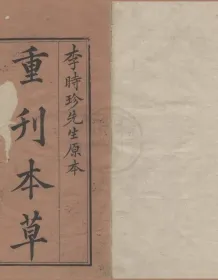 李時珍先生原本
重刊本草